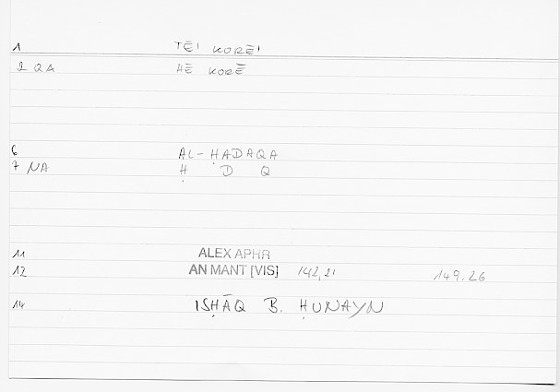 1 TĒI KORĒI
2 QA HĒ KORĒ
6 AL-ḤADAQA
7 NA Ḥ D Q
11 ALEX APHR
12 AN MANT [VIS] 142,21 149.26
14 ISḤĀQ B. ḤUNAYN